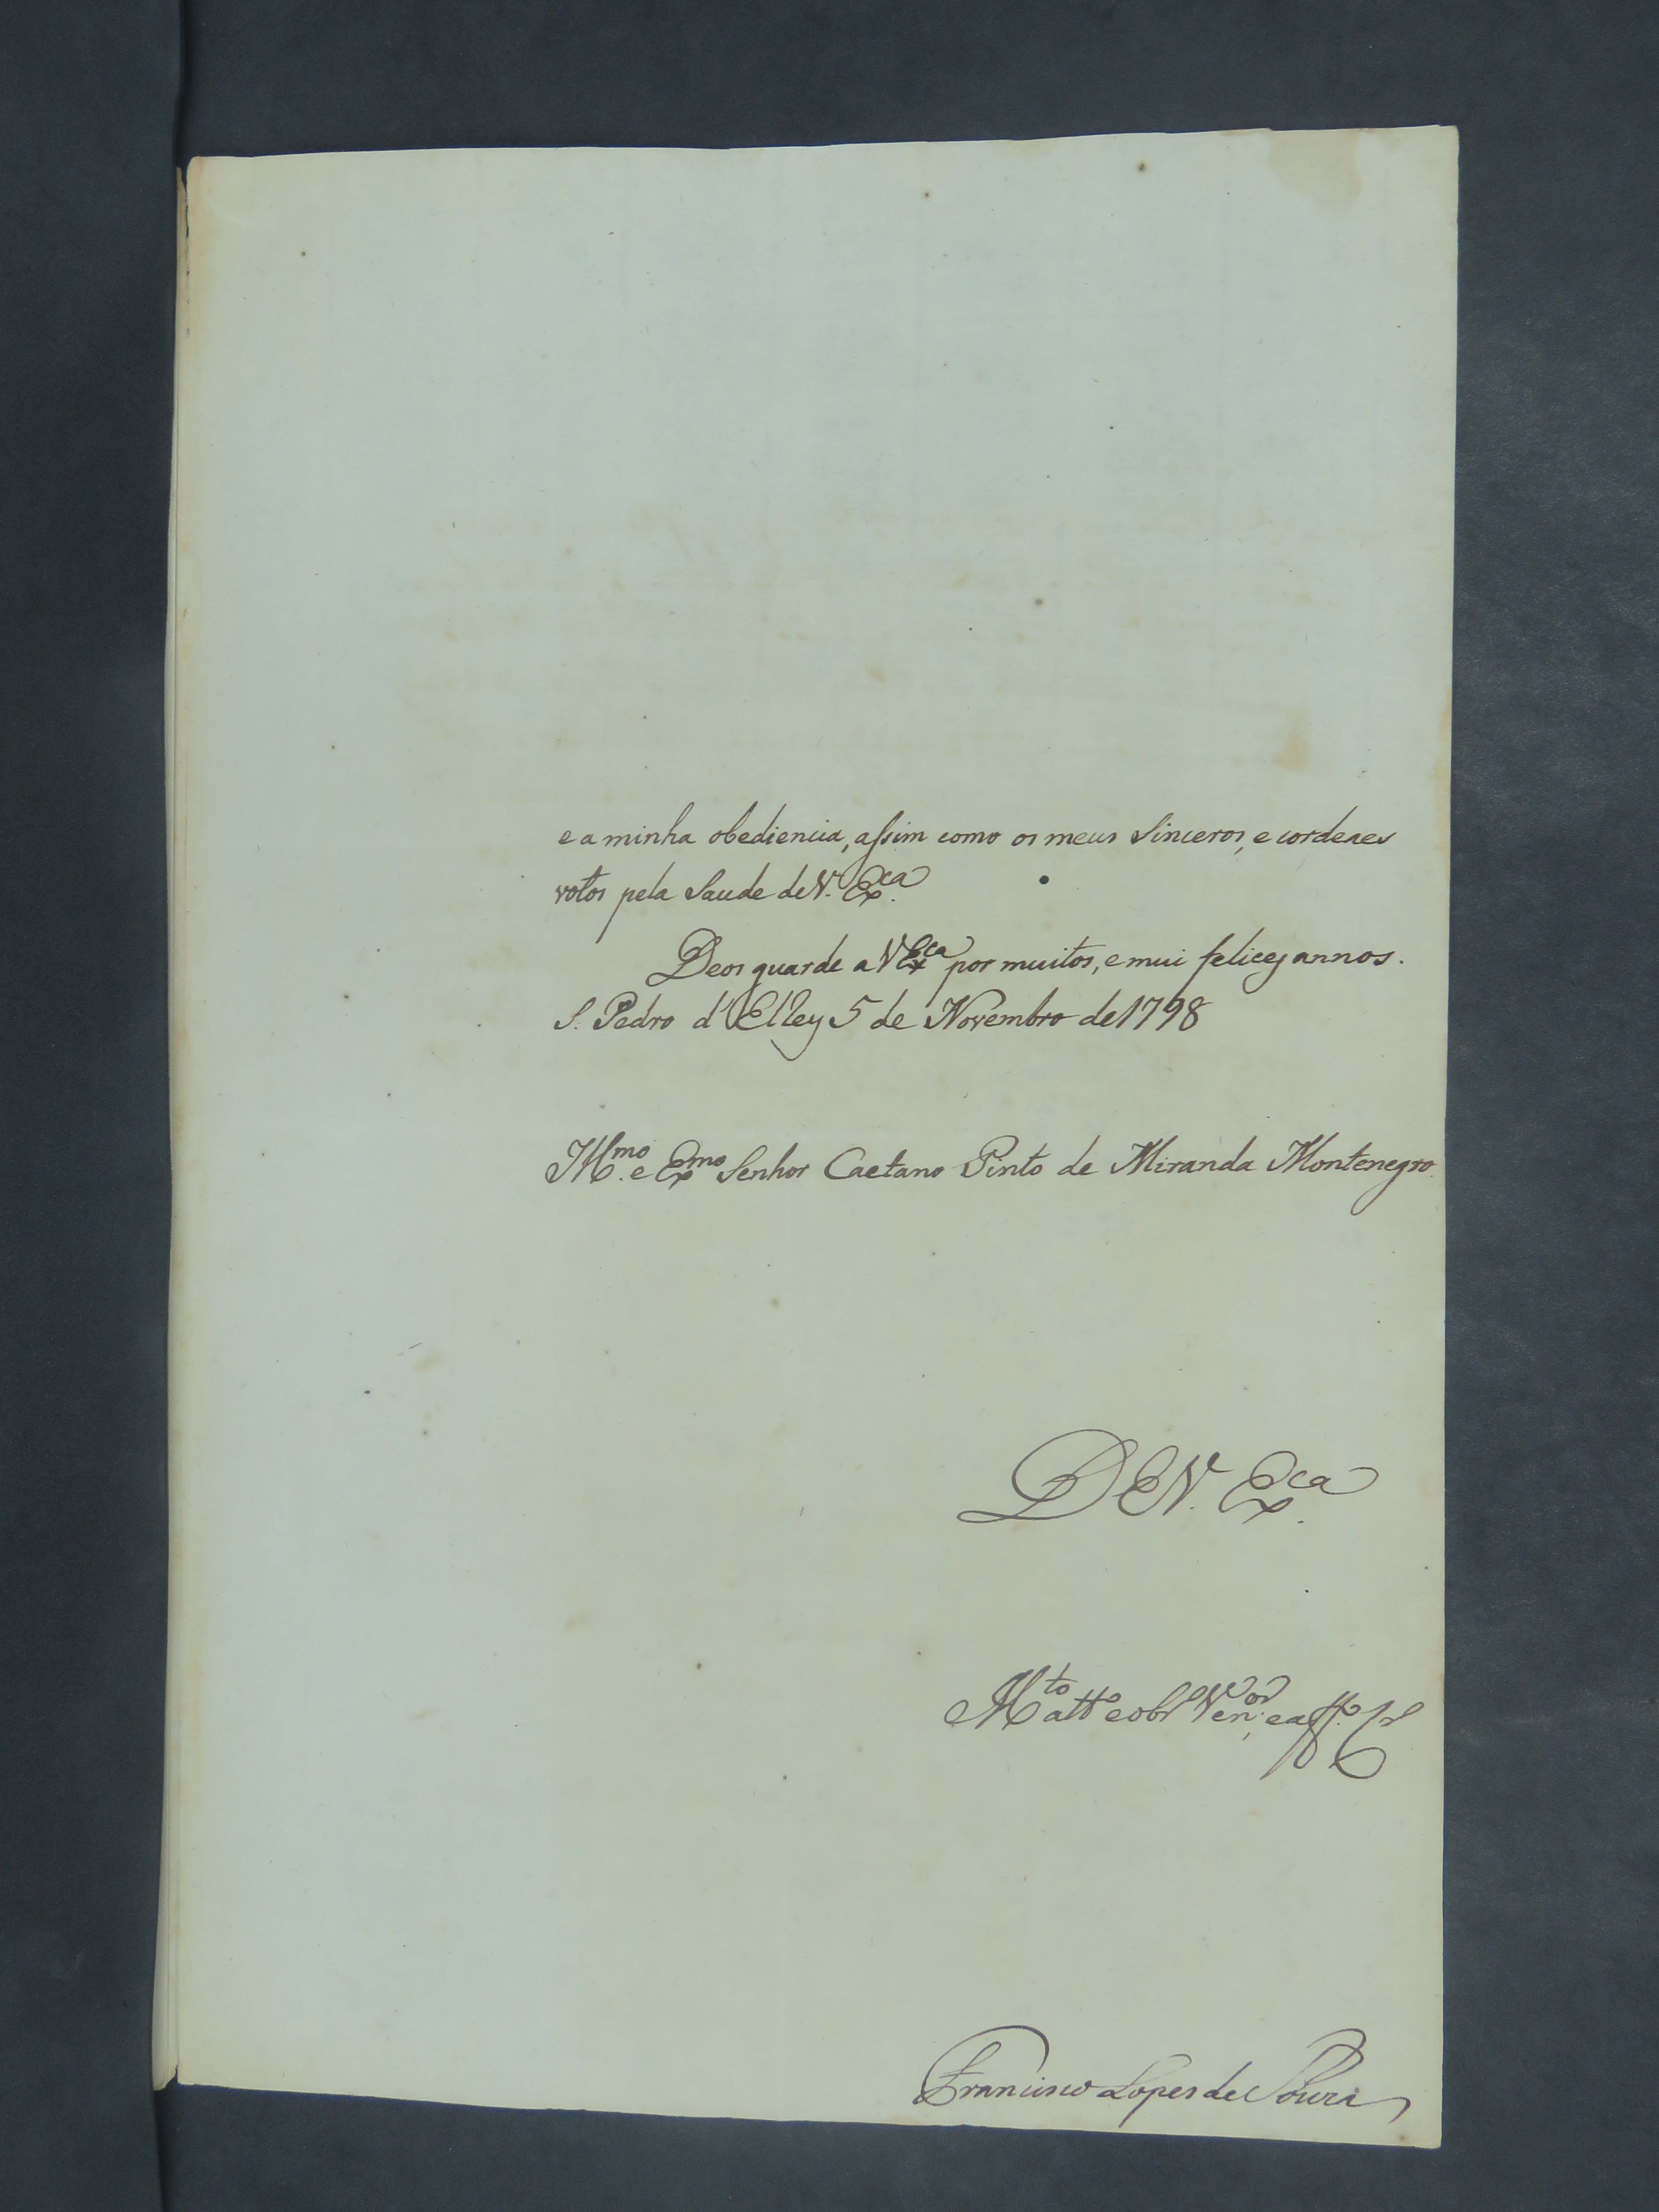 e a minha obediencia, assim como os meus Sinceros, e cordeaes
votos pela Saude de V. Ex.ca
Deos guarde a V Exca por muitos, e mui felices annos.
S. Pedro d'ElRey 5 de Novembro de 1798
Illmo. e Exmo Senhor Caetano Pinto de Miranda Montenegro.
DE V. Ex.ca
Mto atto e obr Vener.or, e aff.o Cr
Francisco Lopes de Souza